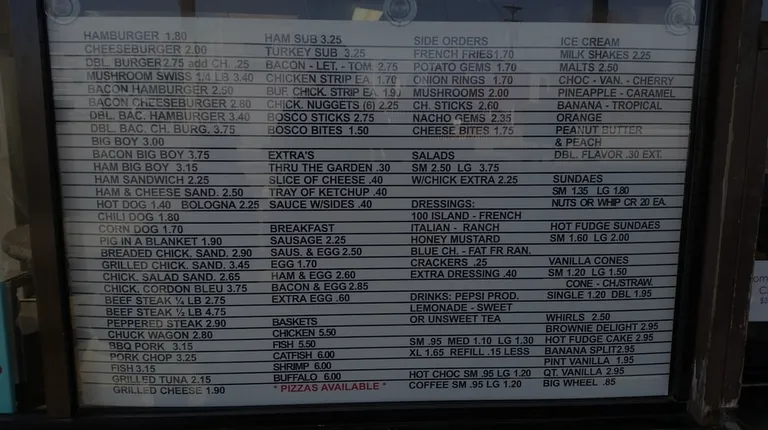 HAMBURGER 1.80
CHEESEBURGER 2.00
DBL. BURGER 2.75 add CH. .25
MUSHROOM SWISS 1/4 LB 3.40
BACON HAMBURGER 2.50
BACON CHEESEBURGER 2.60
DBL. BAC. HAMBURGER 3.40
DBL. BAC. CH. BURG. 3.75
BIG BOY 3.00
BACON BIG BOY 3.75
HAM BIG BOY 3.15
HAM SANDWICH 2.25
HAM & CHEESE SAND. 2.50
HOT DOG 1.40 BOLOGNA 2.25
CHILI DOG 1.80
CORN DOG 1.70
PIG IN A BLANKET 1.90
BREADED CHICK. SAND. 2.90
GRILLED CHICK. SAND. 3.45
CHICK. SALAD SAND. 2.65
CHICK. CORDON BLEU 3.75
BEEF STEAK ¼ LB 2.75
BEEF STEAK ½ LB 4.75
PEPPERED STEAK 2.90
CHUCK WAGON 2.80
BBQ PORK 3.15
PORK CHOP 3.25
FISH 3.15
GRILLED TUNA 2.15
GRILLED CHEESE 1.90
HAM SUB 3.25
TURKEY SUB 3.25
BACON - LET. - TOM. 2.75
CHICKEN STRIP EA. 1.70
BUF. CHICK. STRIP EA. 1.90
CHICK. NUGGETS (6) 2.25
BOSCO STICKS 2.75
BOSCO BITES 1.50
EXTRA'S
THRU THE GARDEN .30
SLICE OF CHEESE .40
TRAY OF KETCHUP .40
SAUCE W/SIDES .40
BREAKFAST
SAUSAGE 2.25
SAUS. & EGG 2.50
EGG 1.70
HAM & EGG 2.60
BACON & EGG 2.85
EXTRA EGG .60
BASKETS
CHICKEN 5.50
FISH 5.50
CATFISH 6.00
SHRIMP 6.00
BUFFALO 6.00
* PIZZAS AVAILABLE *
SIDE ORDERS
FRENCH FRIES 1.70
POTATO GEMS 1.70
ONION RINGS 1.70
MUSHROOMS 2.00
CH. STICKS 2.60
NACHO GEMS 2.35
CHEESE BITES 1.75
SALADS
SM 2.50 LG 3.75
W/CHICK EXTRA 2.25
DRESSINGS:
100 ISLAND - FRENCH
ITALIAN - RANCH
HONEY MUSTARD
BLUE CH. - FAT FR RAN.
CRACKERS .25
EXTRA DRESSING .40
DRINKS: PEPSI PROD.
LEMONADE - SWEET
OR UNSWEET TEA
SM .95 MED 1.10 LG 1.30
XL 1.65 REFILL .15 LESS
HOT CHOC SM .95 LG 1.20
COFFEE SM .95 LG 1.20
ICE CREAM
MILK SHAKES 2.25
MALTS 2.50
CHOC - VAN. - CHERRY
PINEAPPLE - CARAMEL
BANANA - TROPICAL
ORANGE
PEANUT BUTTER
& PEACH
DBL. FLAVOR .30 EXT.
SUNDAES
SM 1.35 LG 1.80
NUTS OR WHIP CR 20 EA.
HOT FUDGE SUNDAES
SM 1.60 LG 2.00
VANILLA CONES
SM 1.20 LG 1.50
CONE - CH/STRAW.
SINGLE 1.20 DBL 1.95
WHIRLS 2.50
BROWNIE DELIGHT 2.95
HOT FUDGE CAKE 2.95
BANANA SPLIT 2.95
PINT VANILLA 1.95
QT. VANILLA 2.95
BIG WHEEL .85